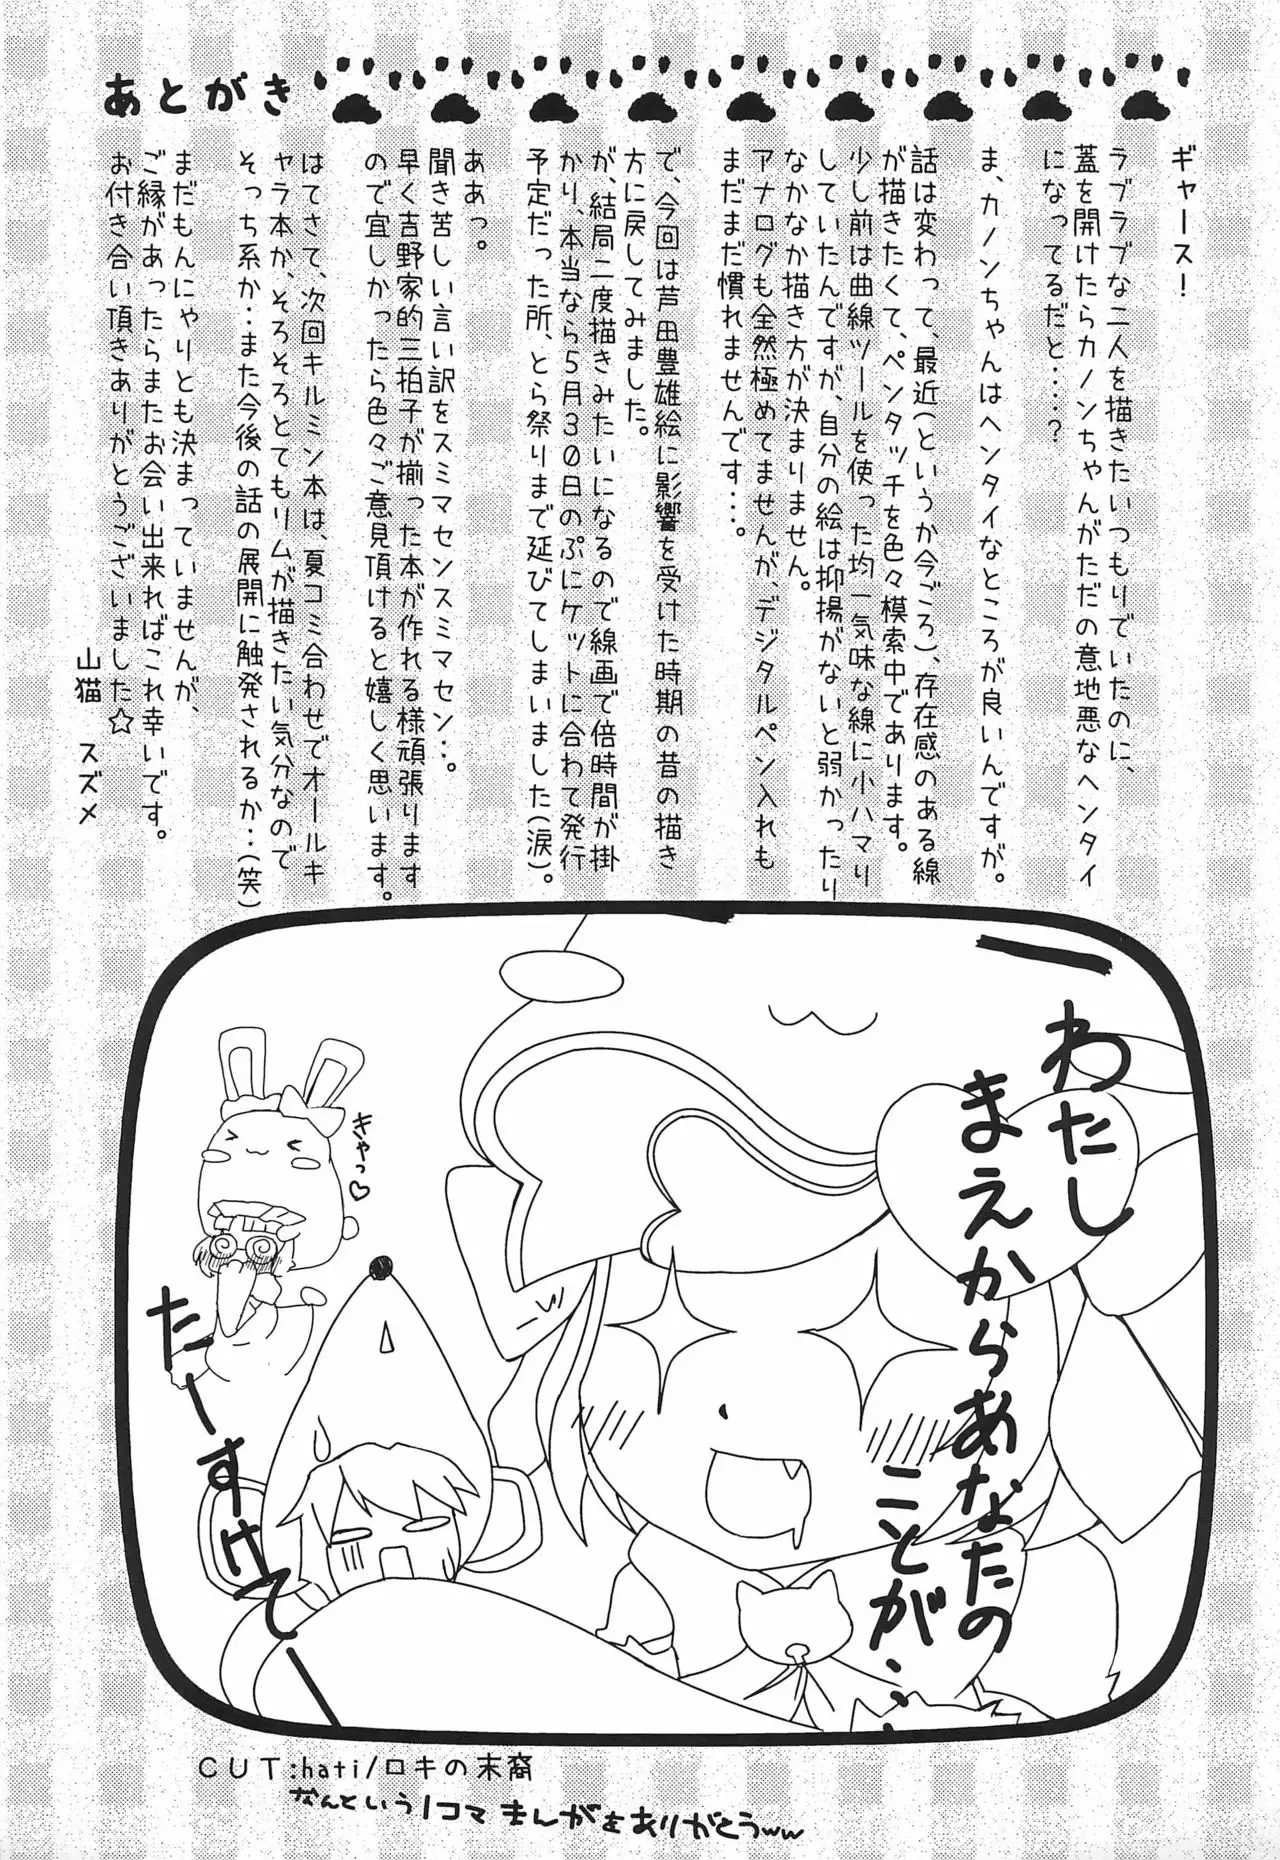 あとがき
ギャース！
ラブラブな二人を描きたいつもりでいたのに、
蓋を開けたらカノンちゃんがただの意地悪なヘンタイ
になってるだと‥‥？
ま、カノンちゃんはヘンタイなところが良いんですが。
話は変わって、最近(というか今ごろ)、存在感のある線
が描きたくて、ペンタッチを色々模索中であります。
少し前は曲線ツールを使った均一気味な線に小ハマり
していたんですが、自分の絵は抑揚がないと弱かったり
なかなか描き方が決まりません。
アナログも全然極めてませんが、デジタルペン入れも
まだまだ慣れませんです‥‥。
で、今回は芦田豊雄絵に影響を受けた時期の昔の描き
方に戻してみました。
が、結局二度描きみたいになるので線画で倍時間が掛
かり、本当なら５月３０日のぷにケットに合わせて発行
予定だった所、とら祭りまで延びてしまいました(涙)。
ああっ。
聞き苦しい言い訳をスミマセンスミマセン‥‥。
早く吉野家的三拍子が揃った本が作れる様頑張ります
ので宜しかったら色々ご意見頂けると嬉しく思います。
はてさて、次回キルミン本は、夏コミ合わせでオールキ
ャラ本か、そろそろとてもリムが描きたい気分なので
そっち系か‥また今後の話の展開に触発されるか‥(笑)
まだもんにゃりとも決まっていませんが、
ご縁があったらまたお会い出来ればこれ幸いです。
お付き合い頂きありがとうございました☆
山猫 スズメ
わたし
まえからあなたの
ことが‥‥
きゃっ♡
たーすけてー
CUT:hati/ロキの末裔
なんという1コマまんがをありがとうww